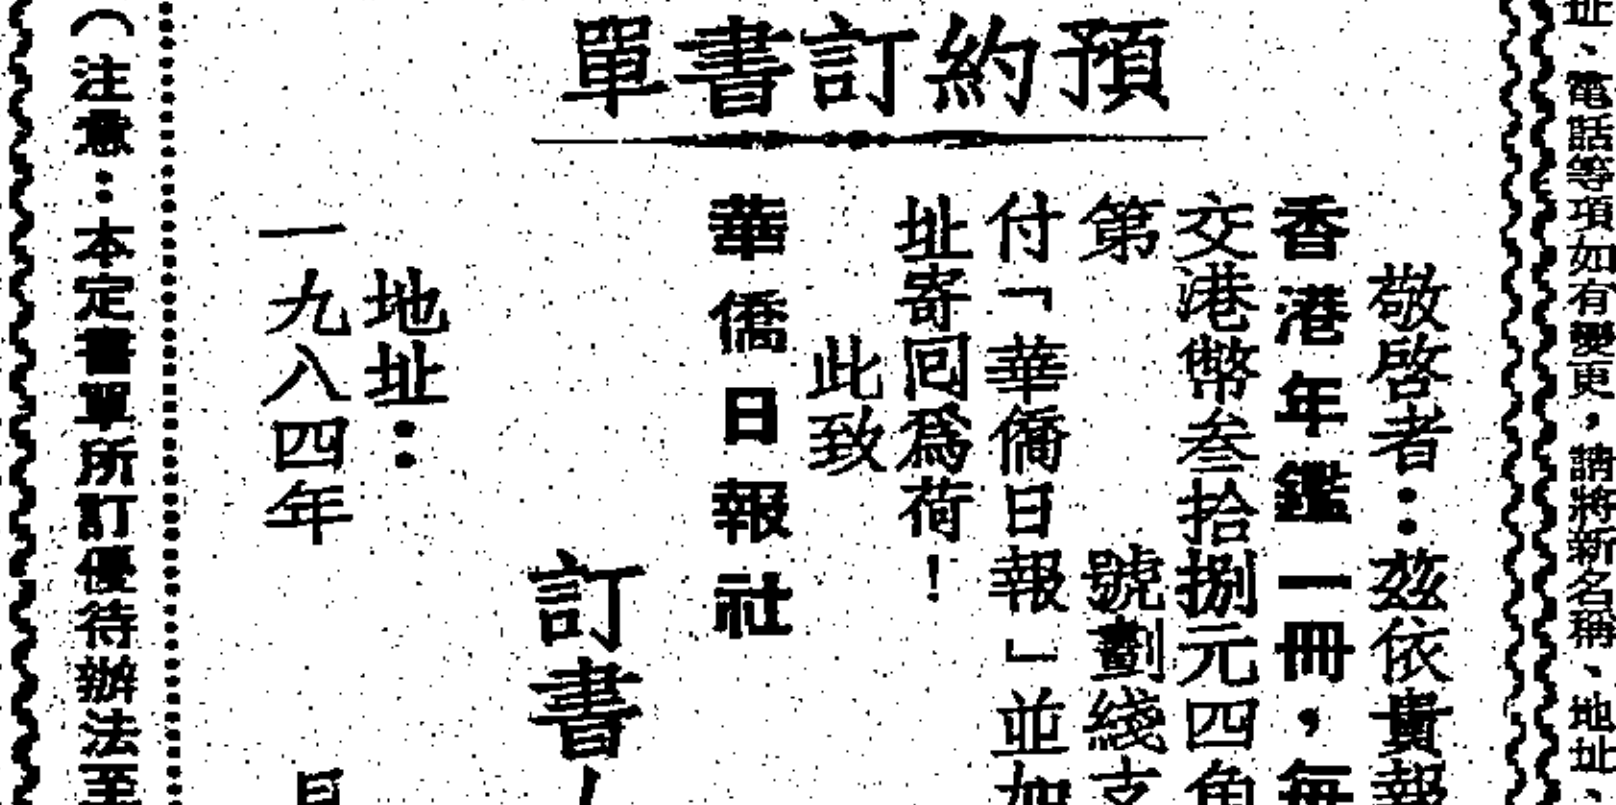 址、電話等項如有變更，請將新名稱、地址、
預約訂書單
敬啓者：茲依貴報
香港年鑑一冊，每
交港幣叁拾捌元四角
第　號劃綫支
付「華僑日報」並加
址寄回爲荷！
此致
華僑日報社
訂書人
地址：
一九八四年　月
（注意：本定書單所訂優待辦法至